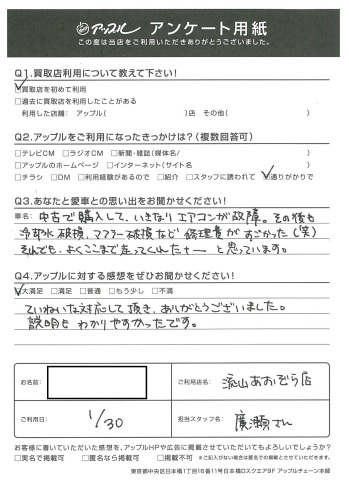 アップル アンケート用紙
この度は当店をご利用いただきありがとうございました。
Q1.買取店利用について教えて下さい!
☑買取店を初めて利用
□過去に買取店を利用したことがある
利用した店舗: アップル( )店 その他( )
Q2.アップルをご利用になったきっかけは?(複数回答可)
□テレビCM □ラジオCM □新聞・雑誌(媒体名/ )
□アップルのホームページ □インターネット(サイト名 )
□チラシ □DM □利用経験があるので □紹介 □スタッフに誘われて ☑通りがかりで
Q3.あなたと愛車との思い出をお聞かせください!
車名: 中古で購入して、いきなりエアコンが故障。その後も
冷却水破損、マフラー破損など修理費がすごかった(笑)
それでも、よくここまで走ってくれたなーと思っています。
Q4.アップルに対する感想をぜひお聞かせください!
☑大満足 □満足 □普通 □もう少し □不満
ていねいな対応して頂き、ありがとうございました。
説明もわかりやすかったです。
お名前:
ご利用店名: 流山おおぞら店
ご利用日: 1/30
担当スタッフ名: 廣瀬さん
お客様に書いていただいた感想を、アップルHPや広告に掲載させていただいてもよろしいでしょうか?
□実名で掲載可 □匿名なら掲載可 □掲載不可 ※ご記入がない場合は匿名での掲載とさせていただきます。
東京都中央区日本橋1丁目16番11号日本橋Dスクエア9F アップルチェーン本部